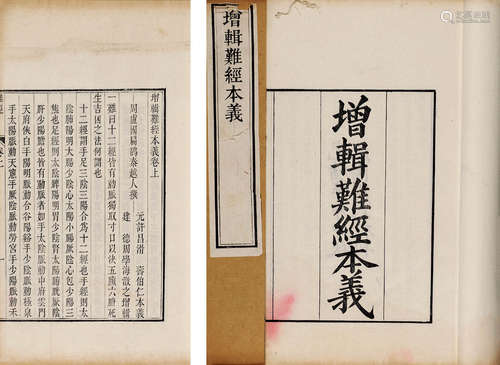 增輯難經本義
增輯難經本義
增輯難經本義卷上
周盧國扁鵲秦越人撰
元許昌滑 壽伯仁本義
建 德周學海澂之增輯
一難曰十二經皆有動脈獨取寸口以決五臟六腑死
生吉凶之法何謂也
十二經謂手足三陰三陽合為十二經也手經則太
陰肺陽明大腸少陰心太陽小腸厥陰心包少陽三
焦也足經則太陰脾陽明胃少陰腎太陽膀胱厥陰
肝少陽膽也皆有動脈者如手太陰脈動中府雲門
天府俠白手陽明脈動合谷陽谿手少陰脈動極泉
手太陽脈動天窗手厥陰脈動勞宮手少陽脈動禾